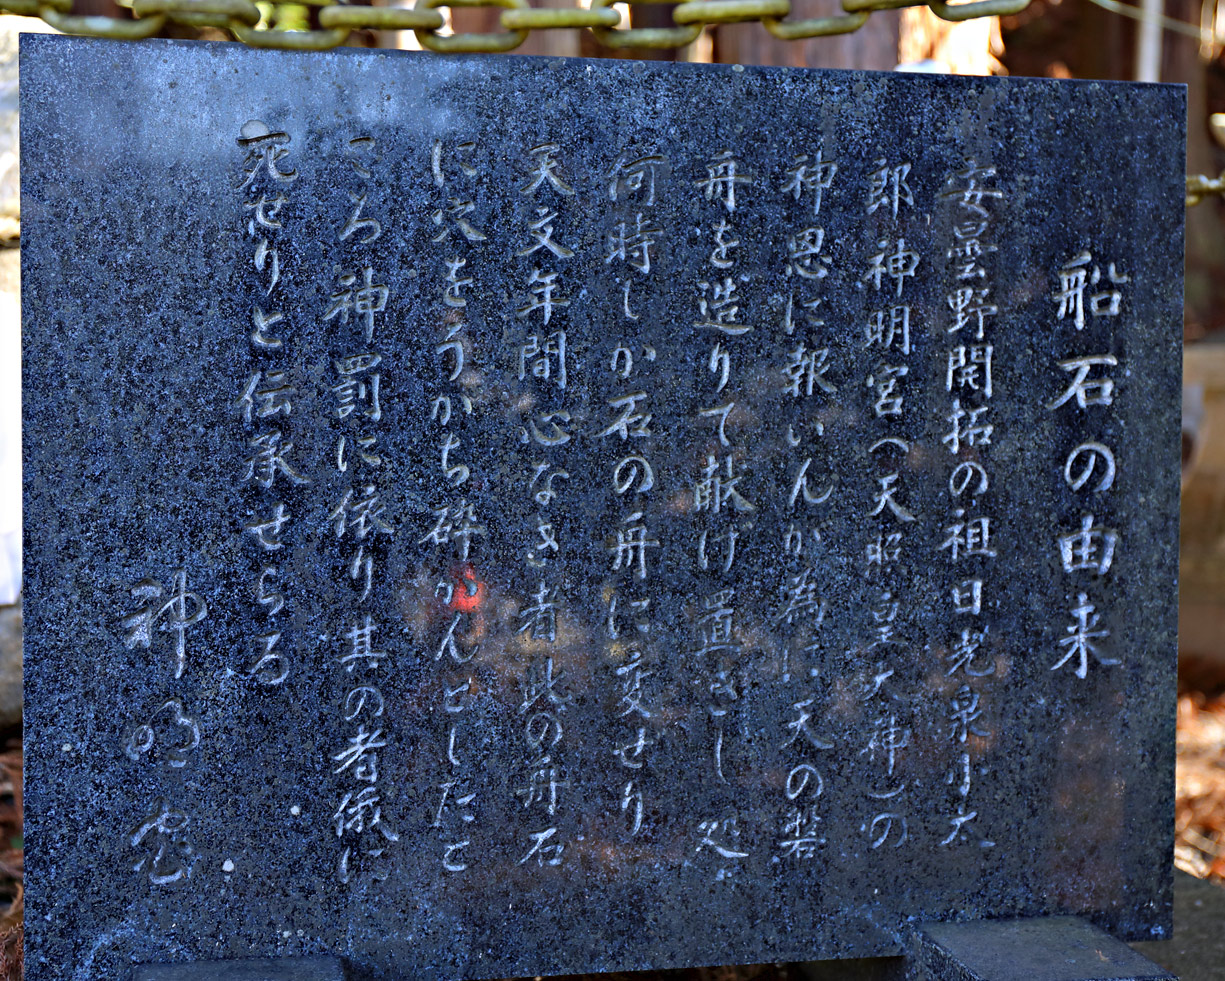 船石の由来
安曇野開拓の祖日光泉小太
郎神明宮(天照皇大神)の
神恩に報いんが為に天の磐
舟を造りて献げ置きし処
何時しか石の舟に変せり
天文年間心なき者此の舟石
に穴をうがち砕かんとしたと
ころ神罰に依り其の者俄に
死せりと伝承せらる
神明宮